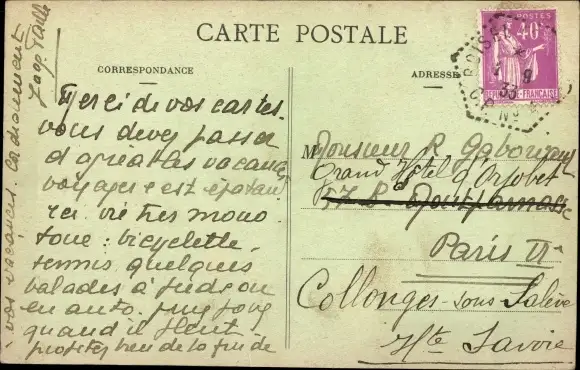 CARTE POSTALE
CORRESPONDANCE
ADRESSE
POSTES
40c
REPUBLIQUE FRANÇAISE
Merci de vos cartes.
vous devez passer
d'agréables vacances
voyager c'est épatant
Ici vie très mono
tone : bicyclette,
tennis quelques
balades à pieds ou
en auto. ping pong
quand il pleut.
profitez bien de la fin de
vos vacances. Cordialement
M
Monsieur R
Grand Hôtel d'
57 B. Montparnasse
Paris VI
Collonges-sous-Salève
Hte Savoie